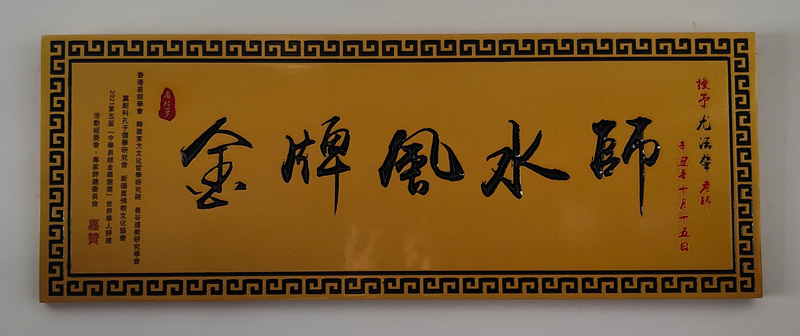 授予 尤法肇 老師
辛丑年十月十五日
金牌風水師
香港易經學會 韓國東方文化哲學研究院 曼谷道教研究學會
莫斯科孔子儒學研究會 新德里佛教文化協會
2021第五屆【中華易經金羅盤獎】世界華人評選
活動組委會·專家評選委員會 嘉贊